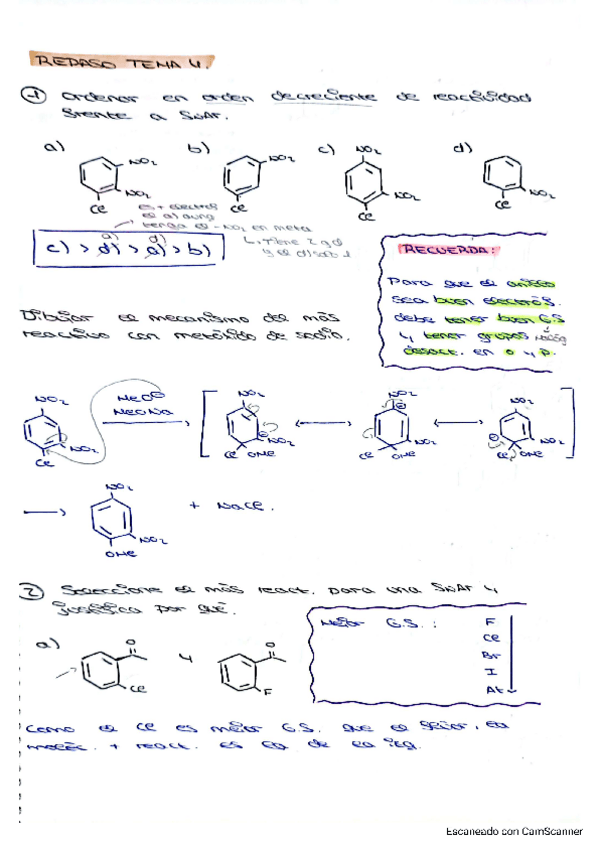 REPASO TEMA 4.
-1 Ordenar en orden decreciente de reactividad
frente a SNAr.
a) NO2 NO2 Cl
b) NO2 Cl
c) NO2 NO2 Cl
d) NO2 Cl
es + electrof
el a) aunq
tenga el -NO2 en meta
c) > d) > a) > b)
a) d)
RECUERDA:
Para que el anillo
sea buen electróf.
debe tener buen G.S
y tener grupos
desact. en o y p.
Dibujar el mecanismo del más
reactivo con metóxido de sodio.
NO2 NO2 Cl
MeO⊖
MeONa
NO2 ⊖ NO2 Cl OMe
NO2 ⊖ NO2 Cl OMe
NO2 ⊖ NO2 Cl OMe
NO2 NO2 OMe
+ NaCl.
2 Seleccione el más react. para una SNAr y
justifica por qué.
a) O Cl y O F
Mejor G.S.: F
Cl
Br
I
At
Como el Cl es mejor G.S. que el flúor, la
moléc. + react. es la de la izq.
Escaneado con CamScanner